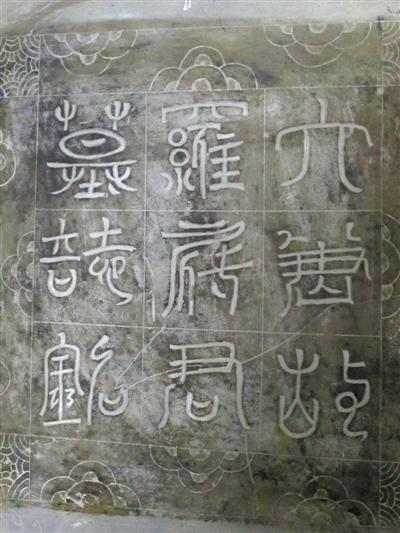 大唐故
羅府君
墓誌銘